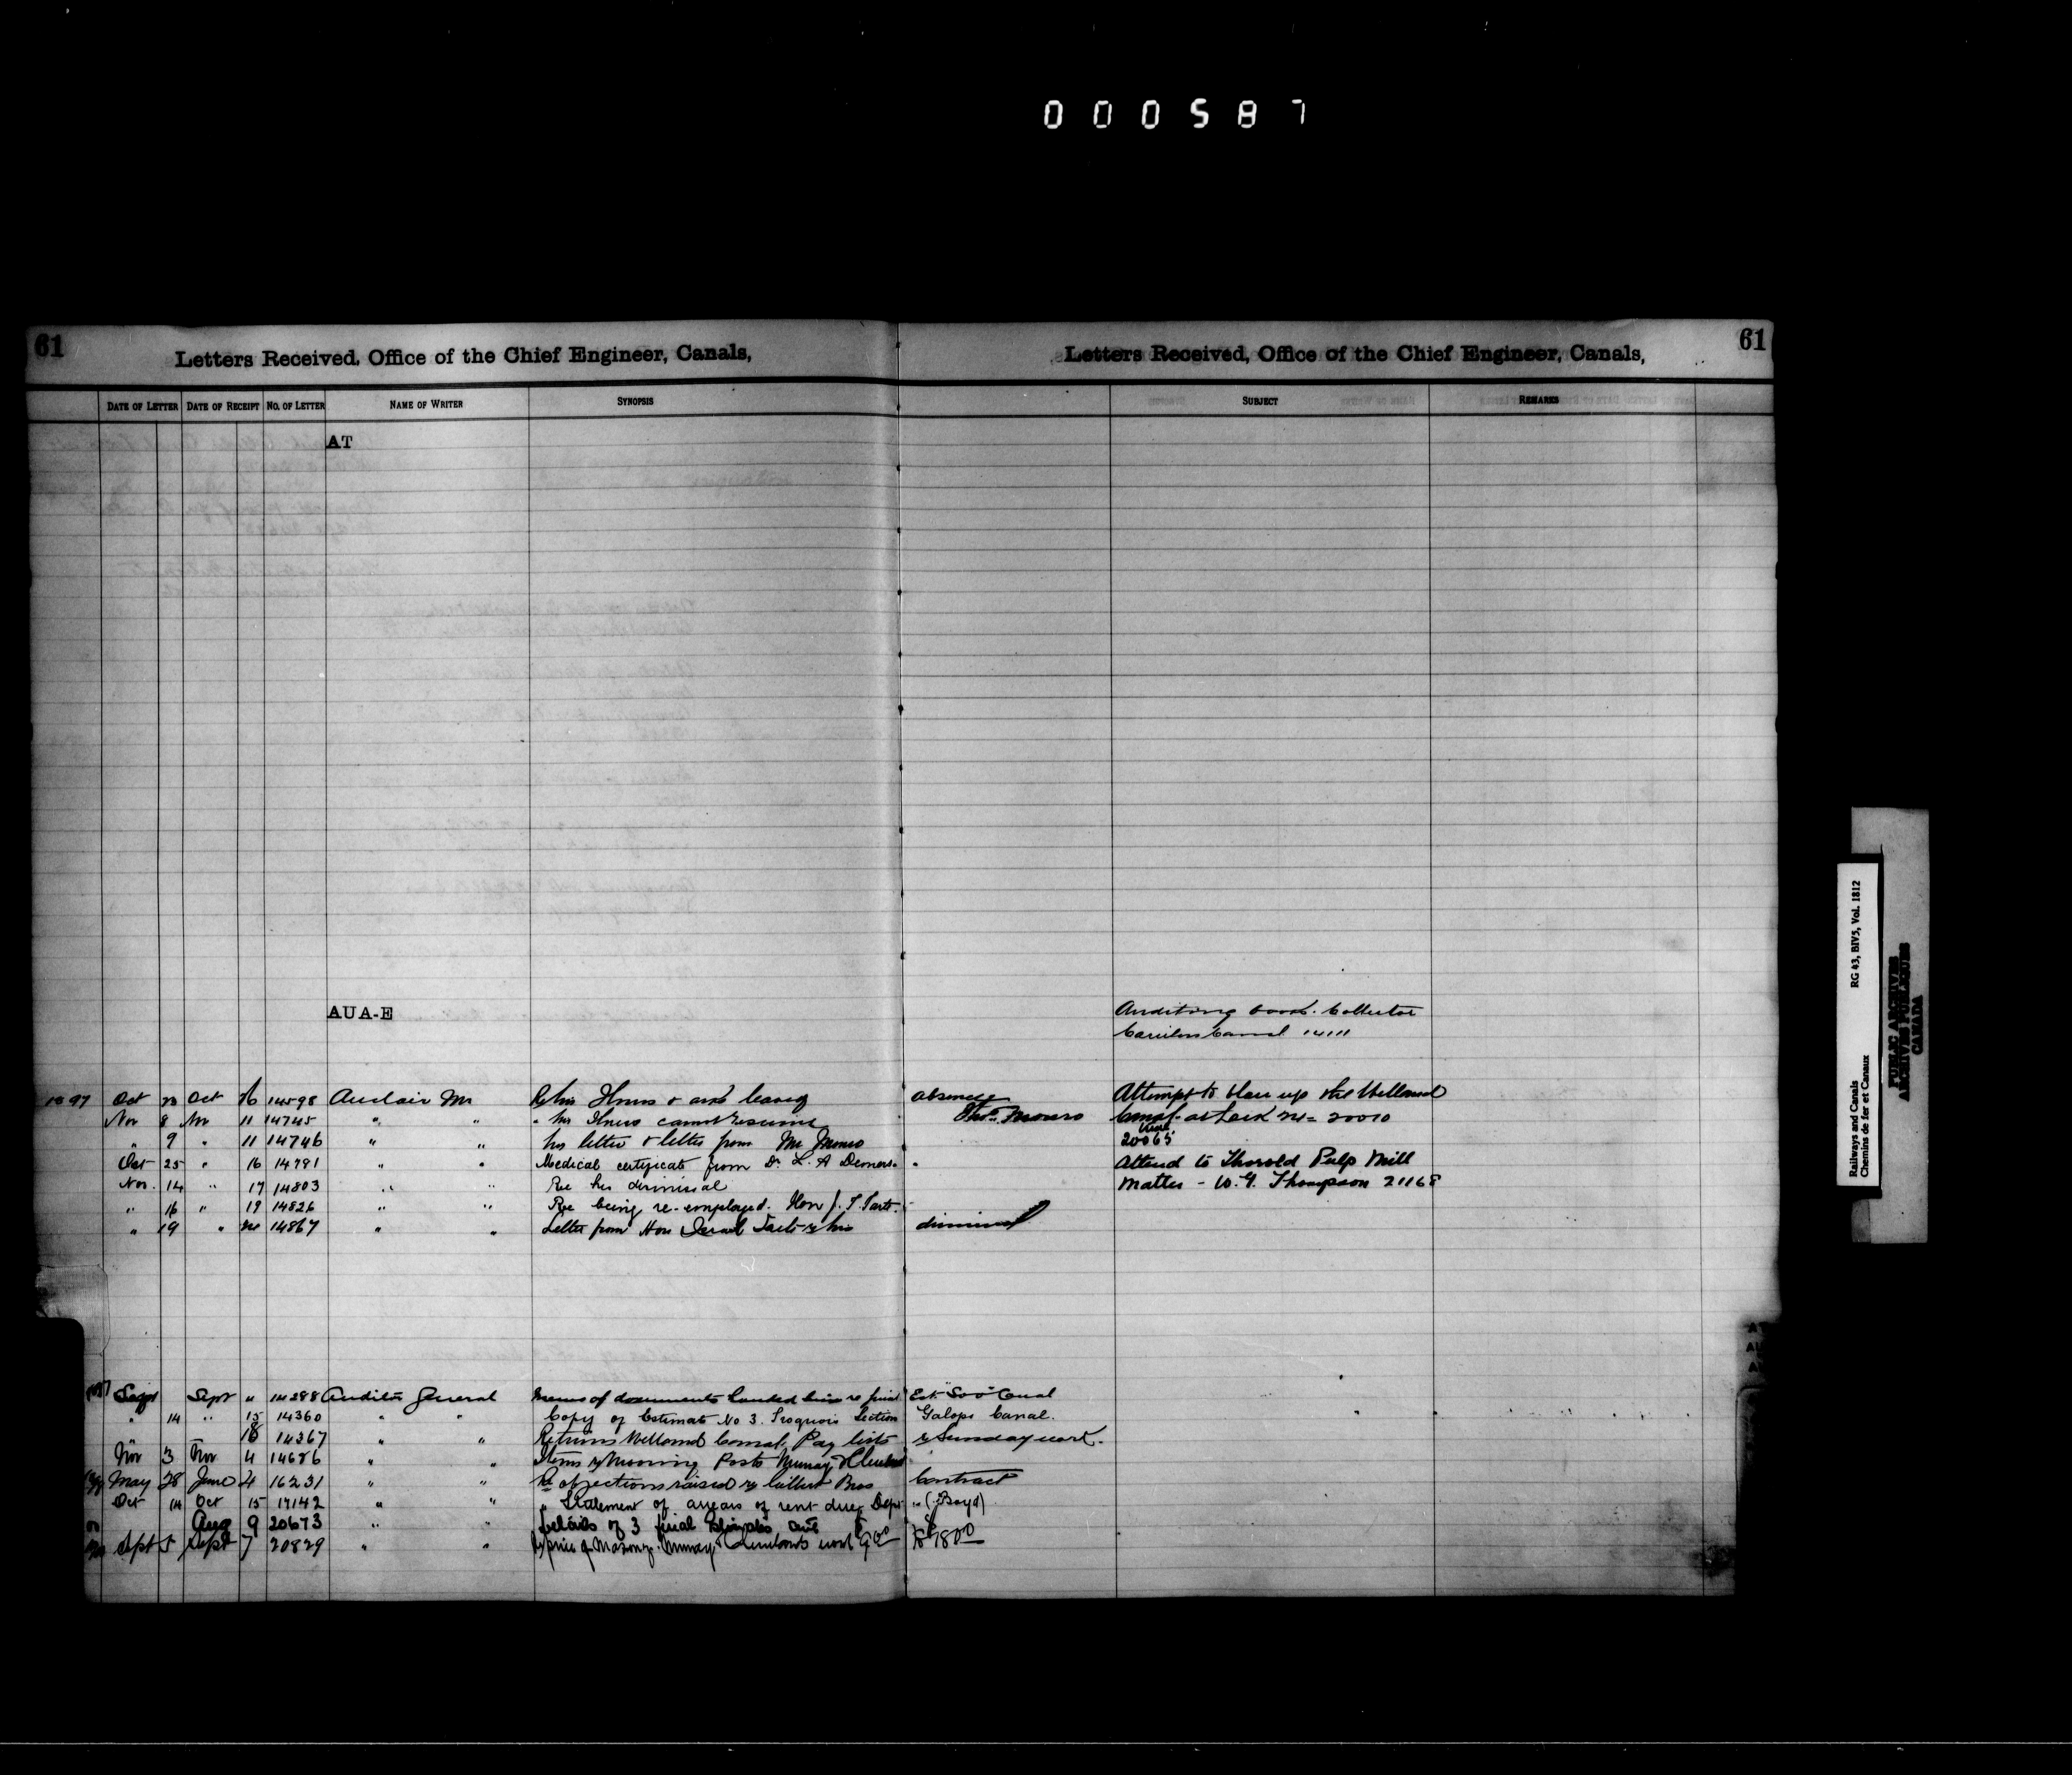 000587
61
Letters Received, Office of the Chief Engineer, Canals,
Letters Received, Office of the Chief Engineer, Canals,
61
DATE OF LETTER DATE OF RECEIPT NO. OF LETTER NAME OF WRITER SYNOPSIS SUBJECT REMARKS
AT
AUA-E
Auditing books Collector
Carillon Canal 14111
1897 Oct Oct 14598 Auclair M absence
Attempt to blow up the Welland
Nov 8 Nov 11 14745 " " Thos. Monro
Canal at Lock 24 = 20010
" 9 " 11 14746 " " his letter & letter from Mr Monro
20065
Oct 25 " 16 14791 " " Medical certificate from Dr. L. A Demers
Attend to Thorold Pulp Mill
Nov. 14 " 17 14803 " " Re his dismissal
Matter - W. G. Thompson 21168
" 16 " 19 14826 " " Re being re-employed. Hon J. I. Tarte
" 19 " 14867 " " Letter from Hon Israel Tarte re his dismissal
Sept Sept " 14288 Auditor General Memo of documents handed him re final Est. "Soo" Canal
" 14 " 15 14360 " " Copy of Estimate No 3. Iroquois Section Galops Canal.
18 14367 " " Returns Welland Canal Pay lists & Sunday work.
Nov 3 Nov 4 14686 " " Items re Mooring Posts Murray & Cleveland
May 28 June 4 16231 " " Re objections raised re Gilbert Bros Contract
Oct 14 Oct 15 17142 " " " Statement of arrears of rent due Dept " (J. Boyd)
Aug 9 20673 " details of 3 final
Sept 5 Sept 7 20829 " " price of Masonry. Murray & Clevelands work 9.00 to 8.00
Railways and Canals RG 43, BIV5, Vol. 1812
Chemins de fer et Canaux
PUBLIC ARCHIVES
ARCHIVES PUBLIQUES
CANADA